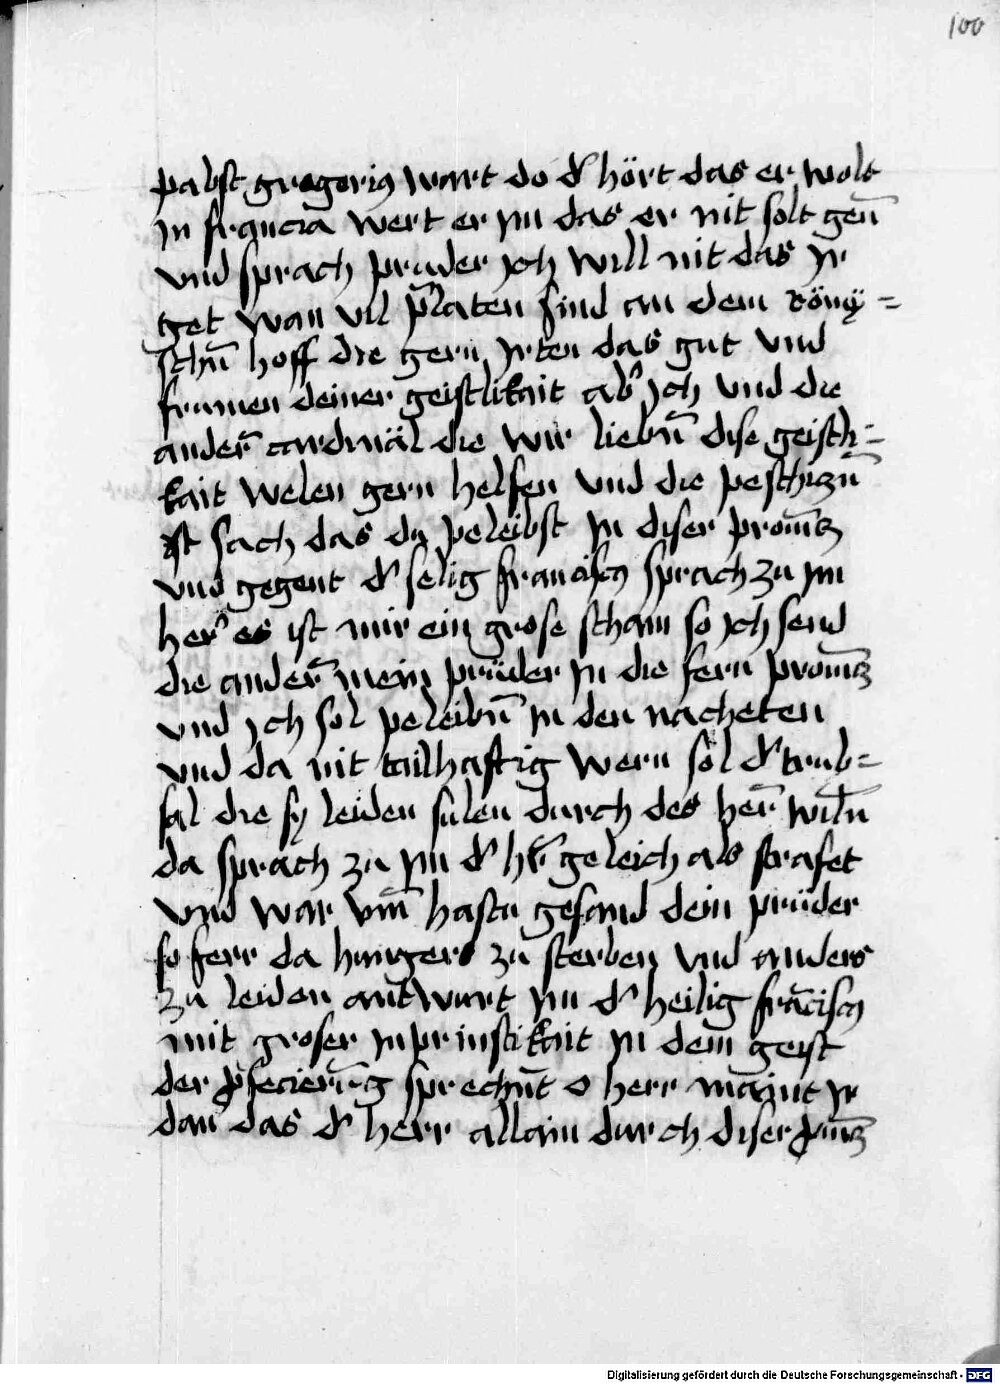 100
pabst gregorius wart do d' hört das er wolt
jn francia wert er jm das er nit solt gen̄
vnd sprach pruder jch will nit das jr
get wan vil p̄laten sind an dem römÿ=
schn̄ hoff die gern jrten das gut vnd
frumen deiner geistlikait ab' jch vnd die
ander̄ cardinäl die wir liebn̄ dise geistli=
kait welen gern helfen vnd die peschirzn̄
ist sach das du peleibst jn diser prouin̄tz
vnd gegent d' selig francisc9 sprach zu jm
her' es ist mir ein grose scham so jch send
die ander̄ mein prüder jn die fern prouin̄tz
vnd jch sol peleibn̄ jn den nacheten
vnd da nit tailhaftig wern sol d' trub=
sal die sy leiden sulen durch des her̄ wiln̄
da sprach zu jm d' hr̄ geleich als strafet
vnd war vm̄ hastu gesand dein prüder
so ferr da hungers zu sterben vnd anders
zu leiden antwurt jm d' heilig frācisc9
mit groser jnprunstikait jn dem geist
der ꝓfecierūg sprechn̄t o herr maint jr
dan̄ das d' herr allain durch diser ꝓuin̄tz
Digitalisierung gefördert durch die Deutsche Forschungsgemeinschaft - DFG